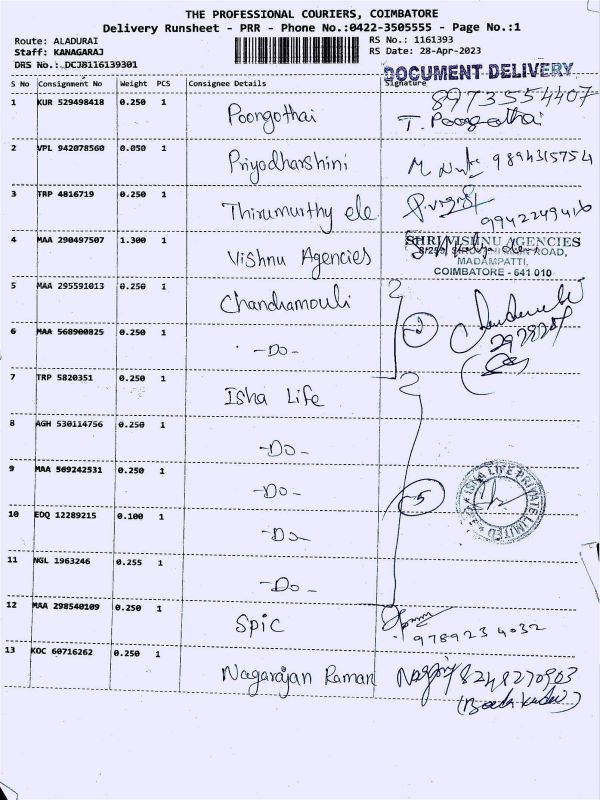 THE PROFESSIONAL COURIERS, COIMBATORE
Delivery Runsheet - PRR - Phone No.:0422-3505555 - Page No.:1
Route: ALADURAI
Staff: KANAGARAJ
DRS No.: DCJB116139301
RS No.: 1161393
RS Date: 28-Apr-2023
DOCUMENT DELIVERY
S No Consignment No Weight PCS Consignee Details Signature
1 KUR 529498418 0.250 1 Poongothai 8973554407
T. Poongothai
2 VPL 942078560 0.050 1 Priyodharshini M 9894315754
3 TRP 4816719 0.250 1 Thirumurthy ele
9942249416
4 MAA 290497507 1.300 1 Vishnu Agencies
SHRI VISHNU AGENCIES
MAIN ROAD,
MADAMPATTI,
COIMBATORE - 641 010
5 MAA 295591013 0.250 1 Chandramouli
6 MAA 568900825 0.250 1 -Do-
2
7 TRP 5820351 0.250 1 Isha Life
8 AGH 530114756 0.250 1 -Do-
9 MAA 569242531 0.250 1 -Do-
5
ISHA LIFE PRIVATE LIMITED
10 EDQ 12289215 0.100 1 -Do-
11 NGL 1963246 0.255 1 -Do-
12 MAA 298540109 0.250 1 Spic
9789234032
13 KOC 60716262 0.250 1 Nagarajan Raman 8248270903